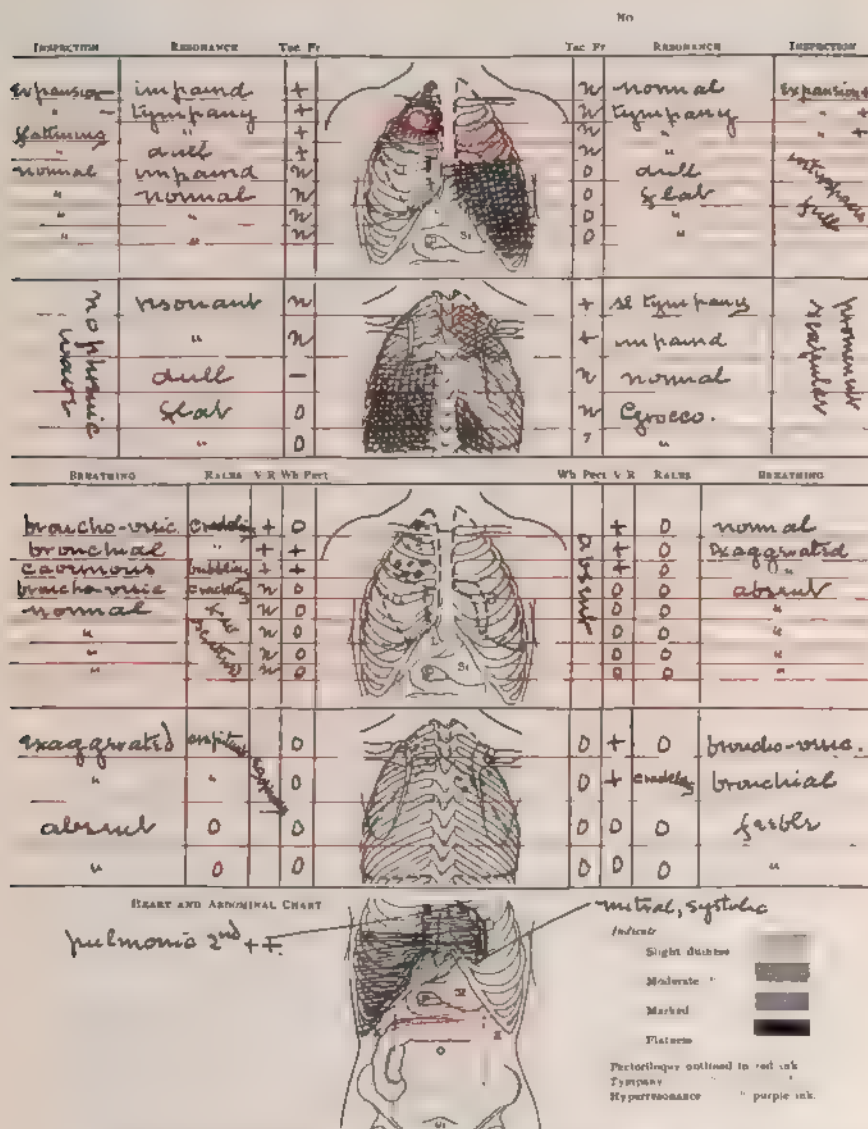 No
INSPECTION RESONANCE Tac Fr Tac Fr RESONANCE INSPECTION
Expansion - impaired + n normal Expansion +
" - tympany + n tympany " +
flattening " + n " +
" dull + n "
normal impaired n 0 dull
" normal n 0 flat full
" " n 0 "
" " n 0 "
St
resonant n + sl tympany
" n + impaired
no phrenic wave prominent scapular
dull - n normal
flat 0 n Grocco.
" 0 ? "
BREATHING RALES V R Wh Pect Wh Pect V R RALES BREATHING
broncho-vesic crackling + 0 absent + 0 normal
bronchial " + + + 0 exaggerated
cavernous bubbling + + + 0 "
broncho-vesic crackling n 0 0 0 absent
normal n 0 0 0 "
" n 0 0 0 "
" n 0 0 0 "
" n 0 0 0 "
St
exaggerated 0 0 + 0 broncho-vesic.
" " 0 0 + crackling bronchial
absent 0 0 0 0 0 feeble
" 0 0 0 0 0 "
HEART AND ABDOMINAL CHART
mitral, systolic
pulmonic 2nd ++
Indicate
Slight dulness
Moderate "
Marked
Flatness
Pectoriloquy outlined in red ink
Tympany " "
Hyperresonance " purple ink.